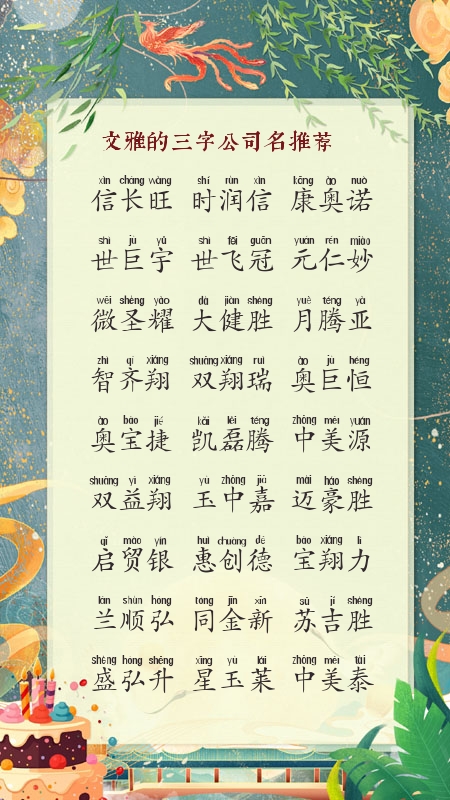 文雅的三字公司名推荐
xìn cháng wàng shí rùn xìn kāng ào nuò
信长旺 时润信 康奥诺
shì jù yǔ shì fēi guān yuán rén miào
世巨宇 世飞冠 元仁妙
wēi shèng yào dà jiàn shèng yuè téng yà
微圣耀 大健胜 月腾亚
zhì qí xiáng shuāng xiáng ruì ào jù héng
智齐翔 双翔瑞 奥巨恒
ào bǎo jié kǎi lěi téng zhōng měi yuán
奥宝捷 凯磊腾 中美源
shuāng yì xiáng yù zhōng jiā mài háo shèng
双益翔 玉中嘉 迈豪胜
qǐ mào yín huì chuàng dé bǎo xiáng lì
启贸银 惠创德 宝翔力
lán shùn hóng tóng jīn xīn sū jí shèng
兰顺弘 同金新 苏吉胜
shèng hóng shēng xīng yù lái zhōng měi tài
盛弘升 星玉莱 中美泰